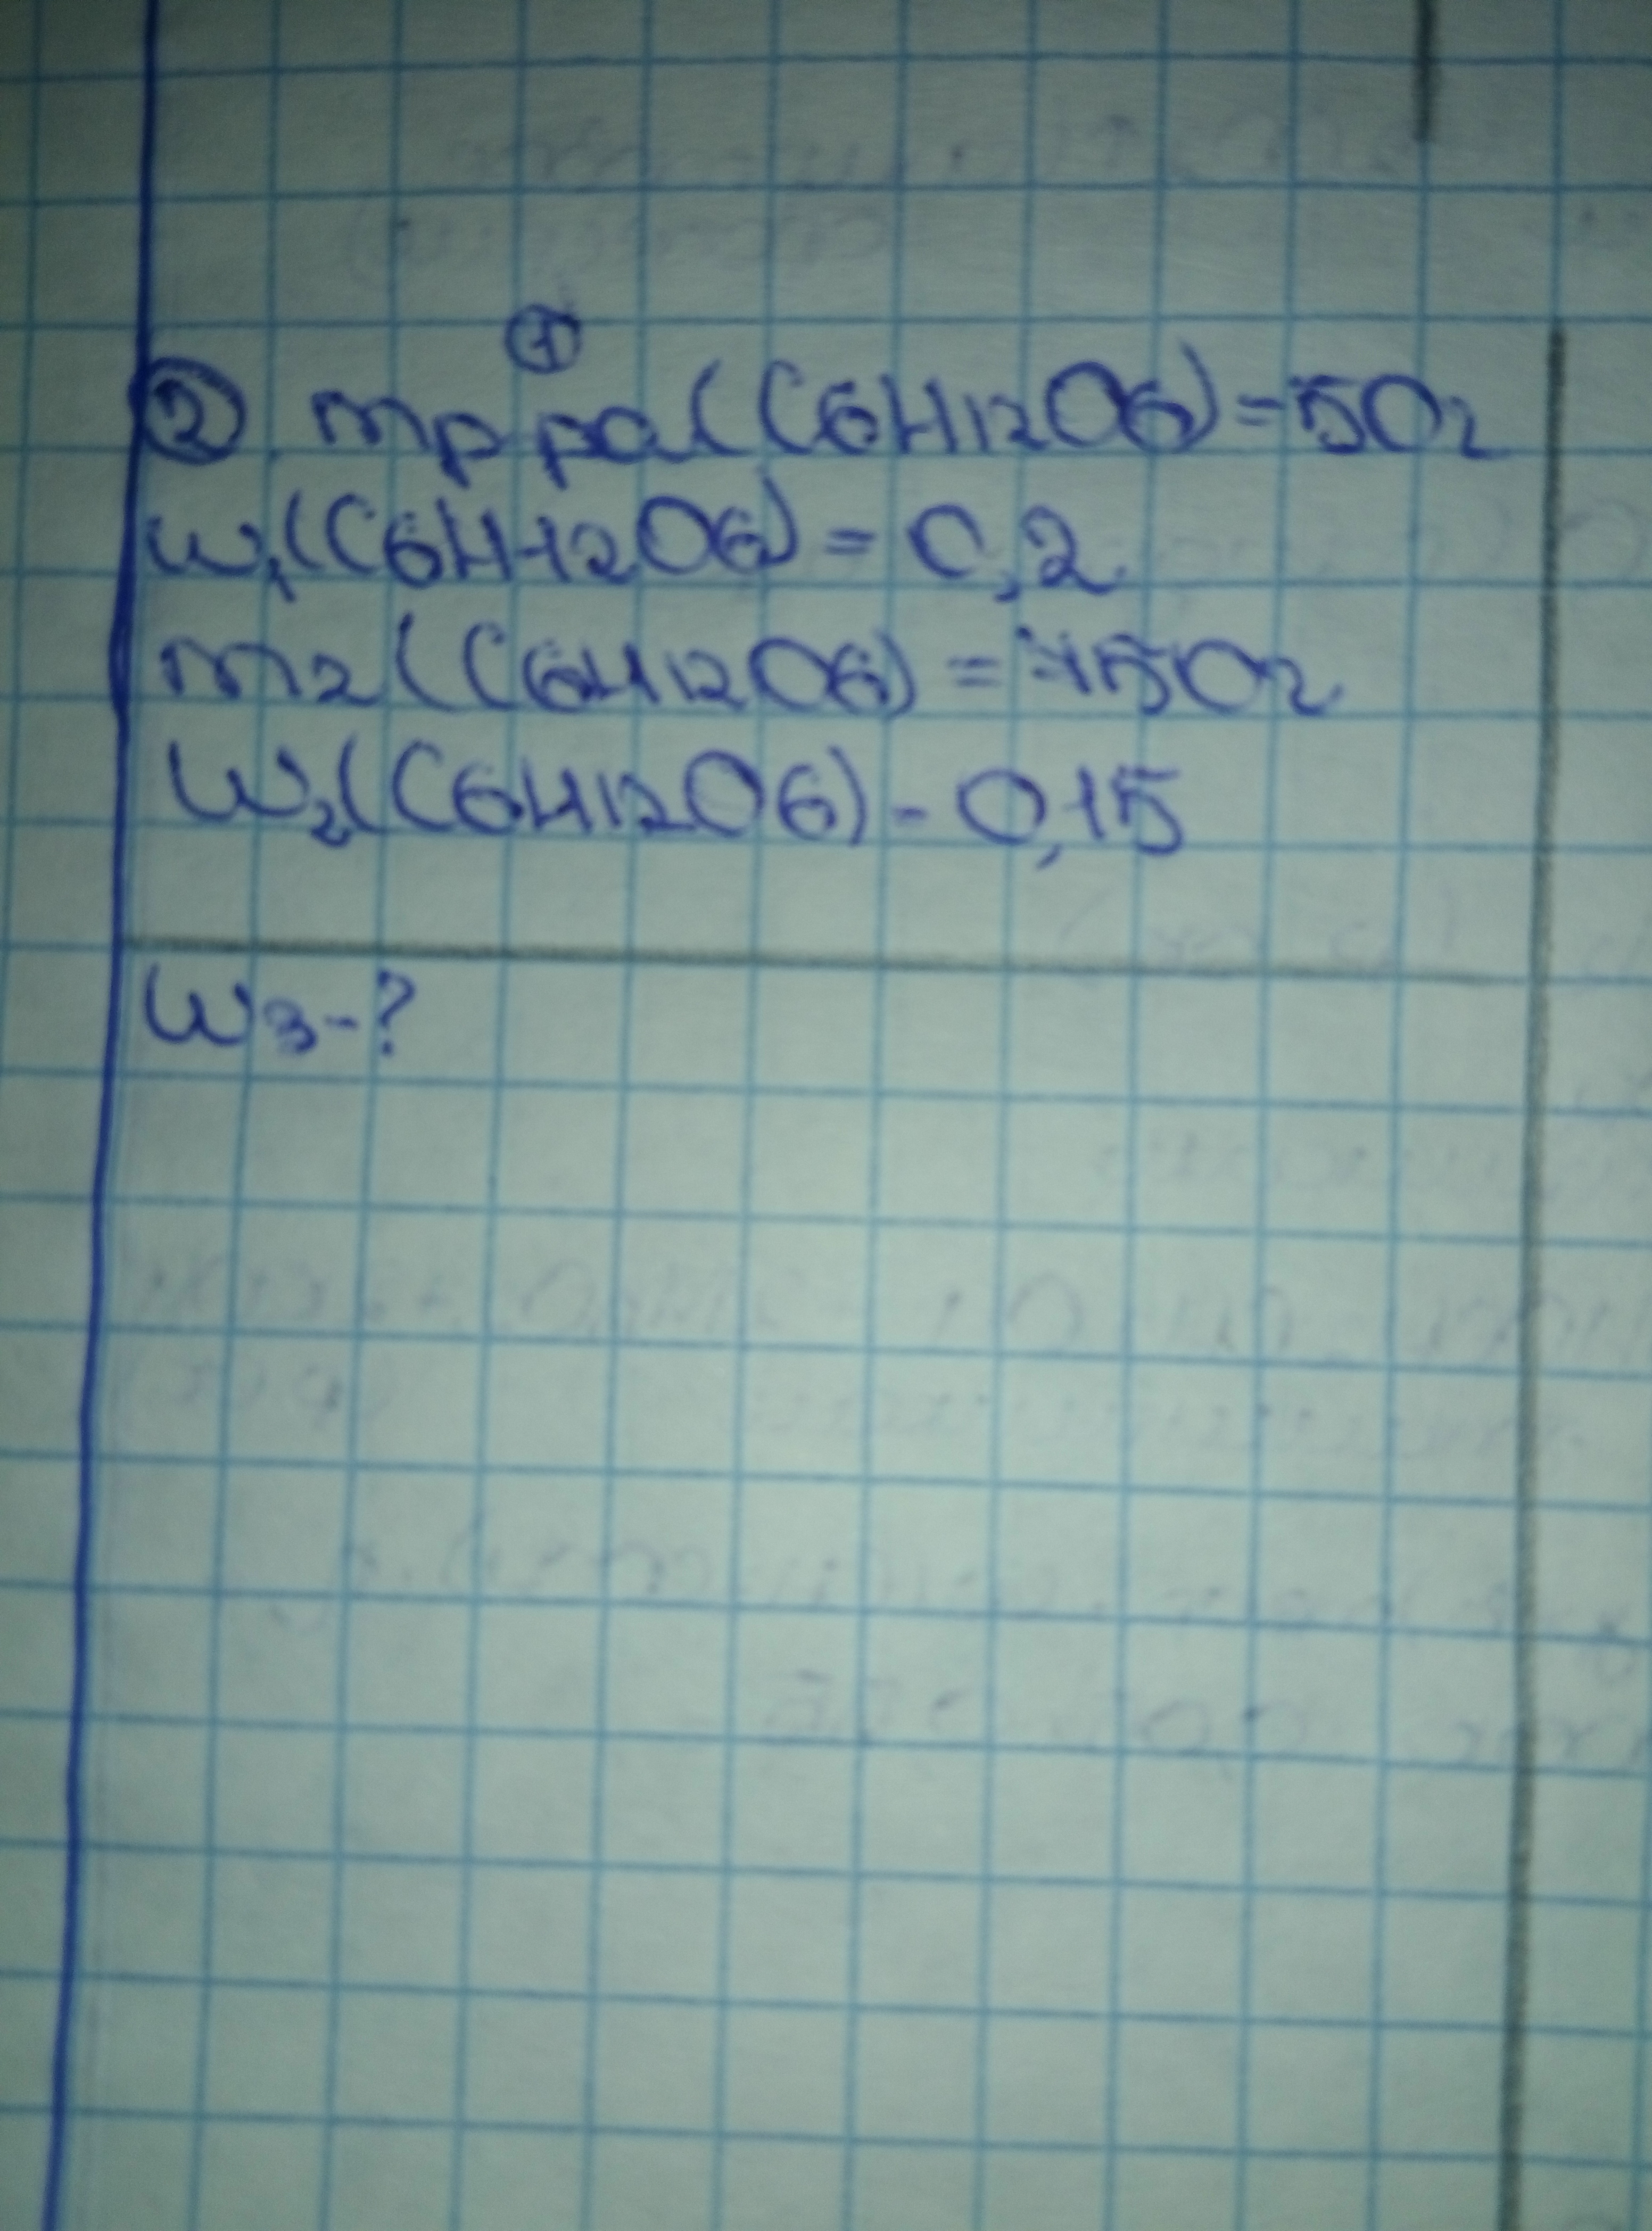 ①
② mр-ра(C6H12O6)=50г
w1(C6H12O6)=0,2
m2(C6H12O6)=150г
w2(C6H12O6)-0,15
w3-?